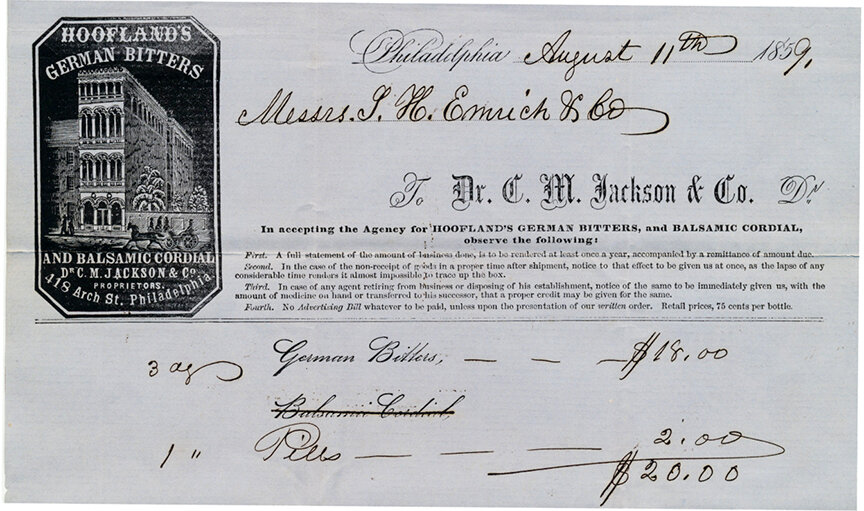 HOOFLAND'S
GERMAN BITTERS
AND BALSAMIC CORDIAL
DR. C. M. JACKSON & Co.
PROPRIETORS.
418 Arch St. Philadelphia
Philadelphia August 11th 1859,
Messrs. J. H. Emrich & Co
To Dr. C. M. Jackson & Co. Dr.
In accepting the Agency for HOOFLAND'S GERMAN BITTERS, and BALSAMIC CORDIAL,
observe the following:
First. A full statement of the amount of business done, is to be rendered at least once a year, accompanied by a remittance of amount due.
Second. In the case of the non-receipt of goods in a proper time after shipment, notice to that effect to be given us at once, as the lapse of any
considerable time renders it almost impossible to trace up the box.
Third. In case of any agent retiring from business or disposing of his establishment, notice of the same to be immediately given us, with the
amount of medicine on hand or transferred to his successor, that a proper credit may be given for the same.
Fourth. No Advertising Bill whatever to be paid, unless upon the presentation of our written order. Retail prices, 75 cents per bottle.
3 German Bitters, — — — $18.00
Balsamic Cordial,
1 " Pills — — — — 2.00
$20.00